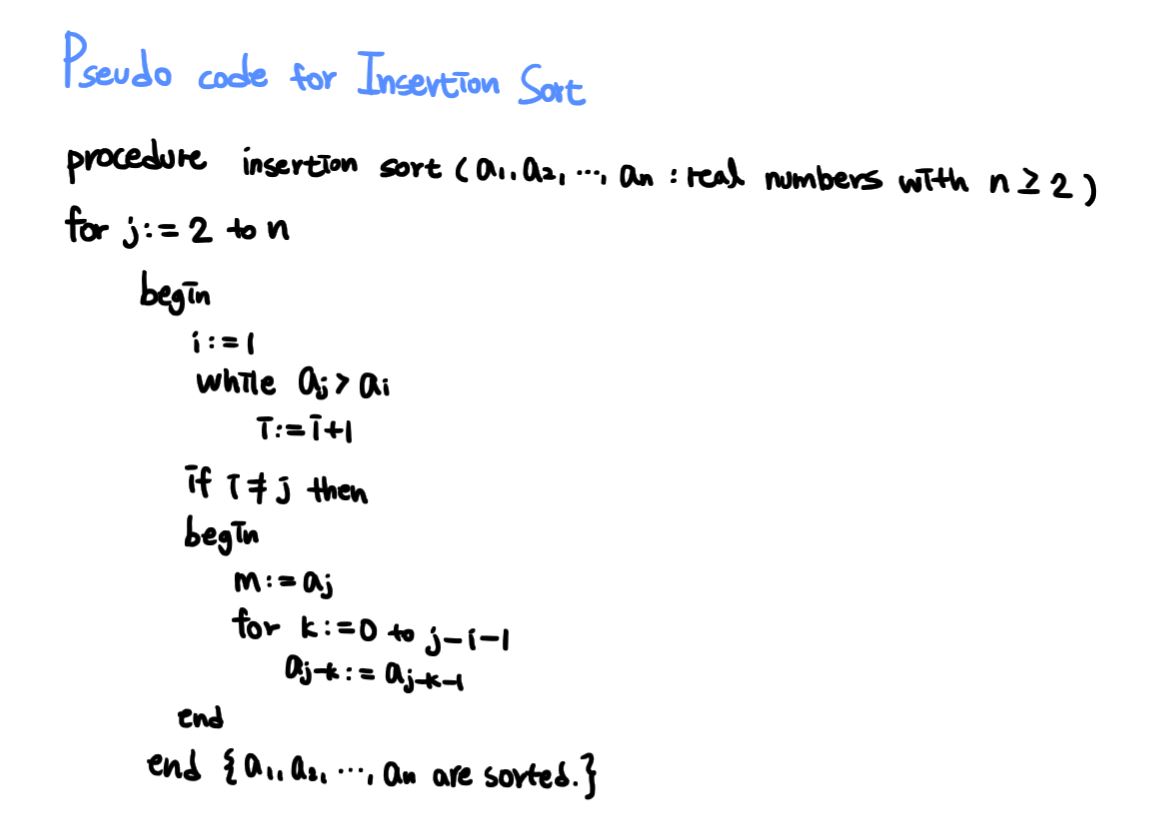 Pseudo code for Insertion Sort
procedure insertion sort (a₁, a₂, ..., aₙ : real numbers with n ≥ 2)
for j := 2 to n
begin
i := 1
while aⱼ > aᵢ
i := i+1
if i ≠ j then
begin
m := aⱼ
for k := 0 to j-i-1
aⱼ₋ₖ := aⱼ₋ₖ₋₁
end
end {a₁, a₂, ..., aₙ are sorted.}